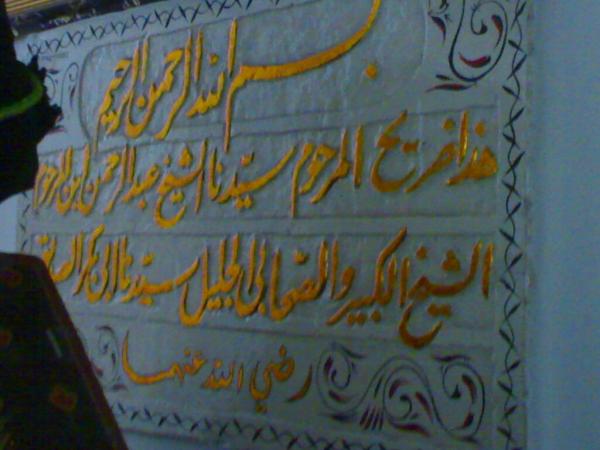 بسم الله الرحمن الرحيم
هذا ضريح المرحوم سيّدنا الشيخ عبد الرحمن ابن المرحوم
الشيخ الكبير والصّحابى الجليل سيّدنا ابى بكر الصديق
رضي الله عنهما